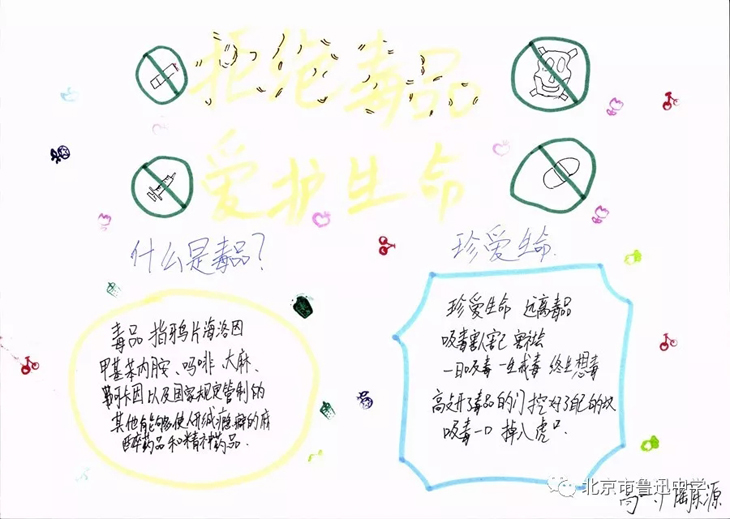 拒绝毒品
爱护生命
什么是毒品?
珍爱生命.
毒品 指鸦片海洛因
甲基苯丙胺、吗啡、大麻、
可卡因以及国家规定管制的
其他能够使人形成瘾癖的麻
醉药品和精神药品.
珍爱生命 远离毒品
吸毒害人害己
一日吸毒 一生戒毒 终生想毒
了毒品的门 挖好了自己的坟
吸毒一口 掉入虎口
北京市鲁迅中学
高一